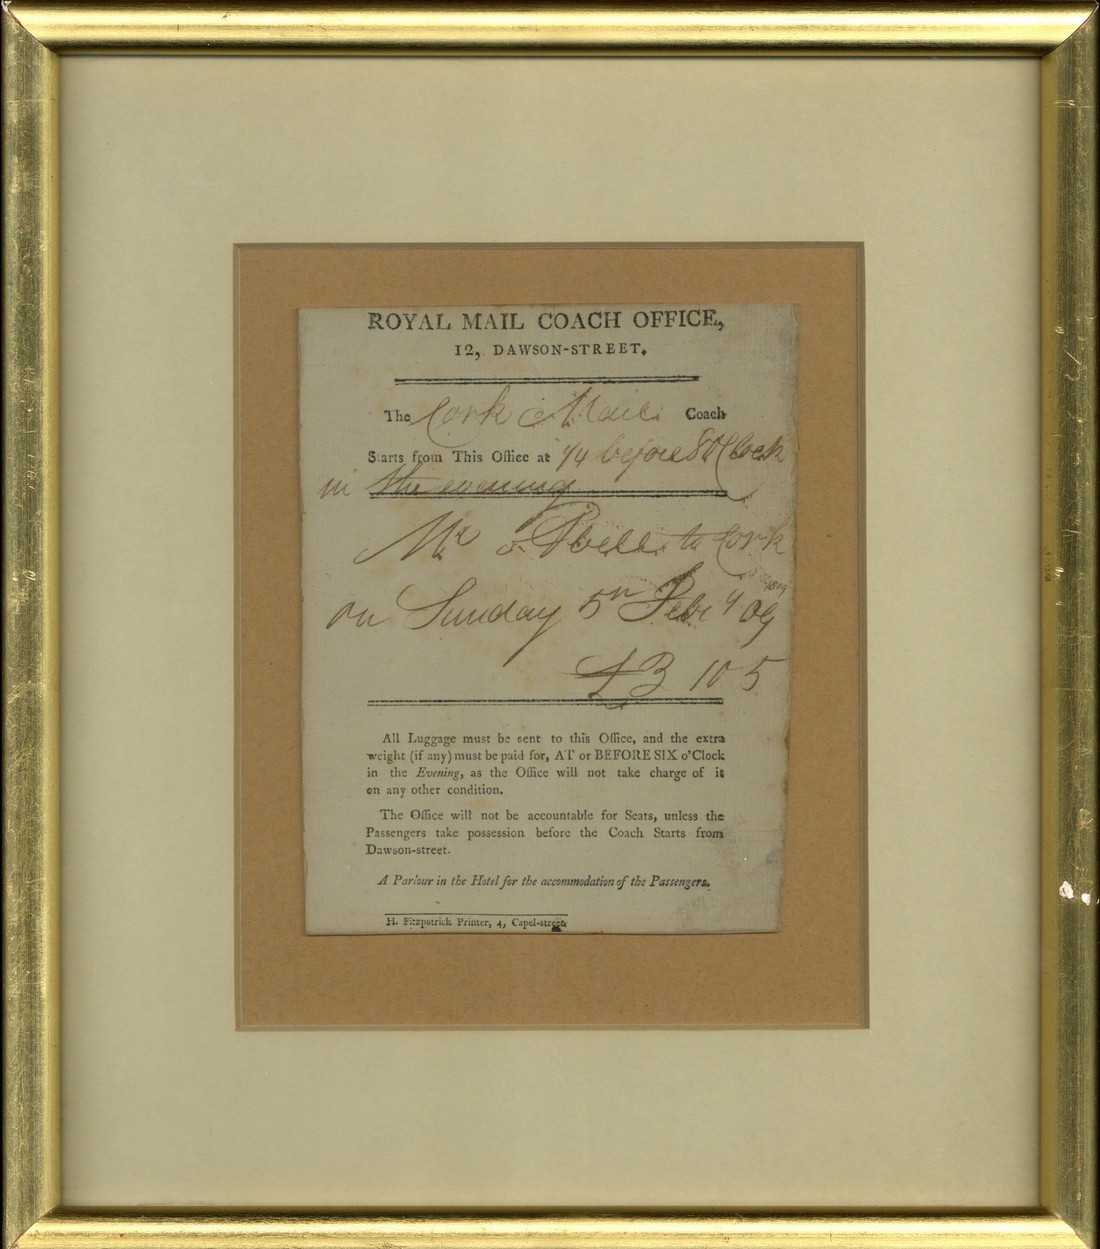 ROYAL MAIL COACH OFFICE,
12, DAWSON-STREET.
The Cork Mail Coach
Starts from This Office at 1/4 before 8 O'Clock
in the evening
Mr to Cork
on Sunday 5th Feby 09
1809
£3 10 5
All Luggage must be sent to this Office, and the extra
weight (if any) must be paid for, AT or BEFORE SIX o'Clock
in the Evening, as the Office will not take charge of it
on any other condition.
The Office will not be accountable for Seats, unless the
Passengers take possession before the Coach Starts from
Dawson-street.
A Parlour in the Hotel for the accommodation of the Passengers.
H. Fitzpatrick Printer, 4, Capel-street.